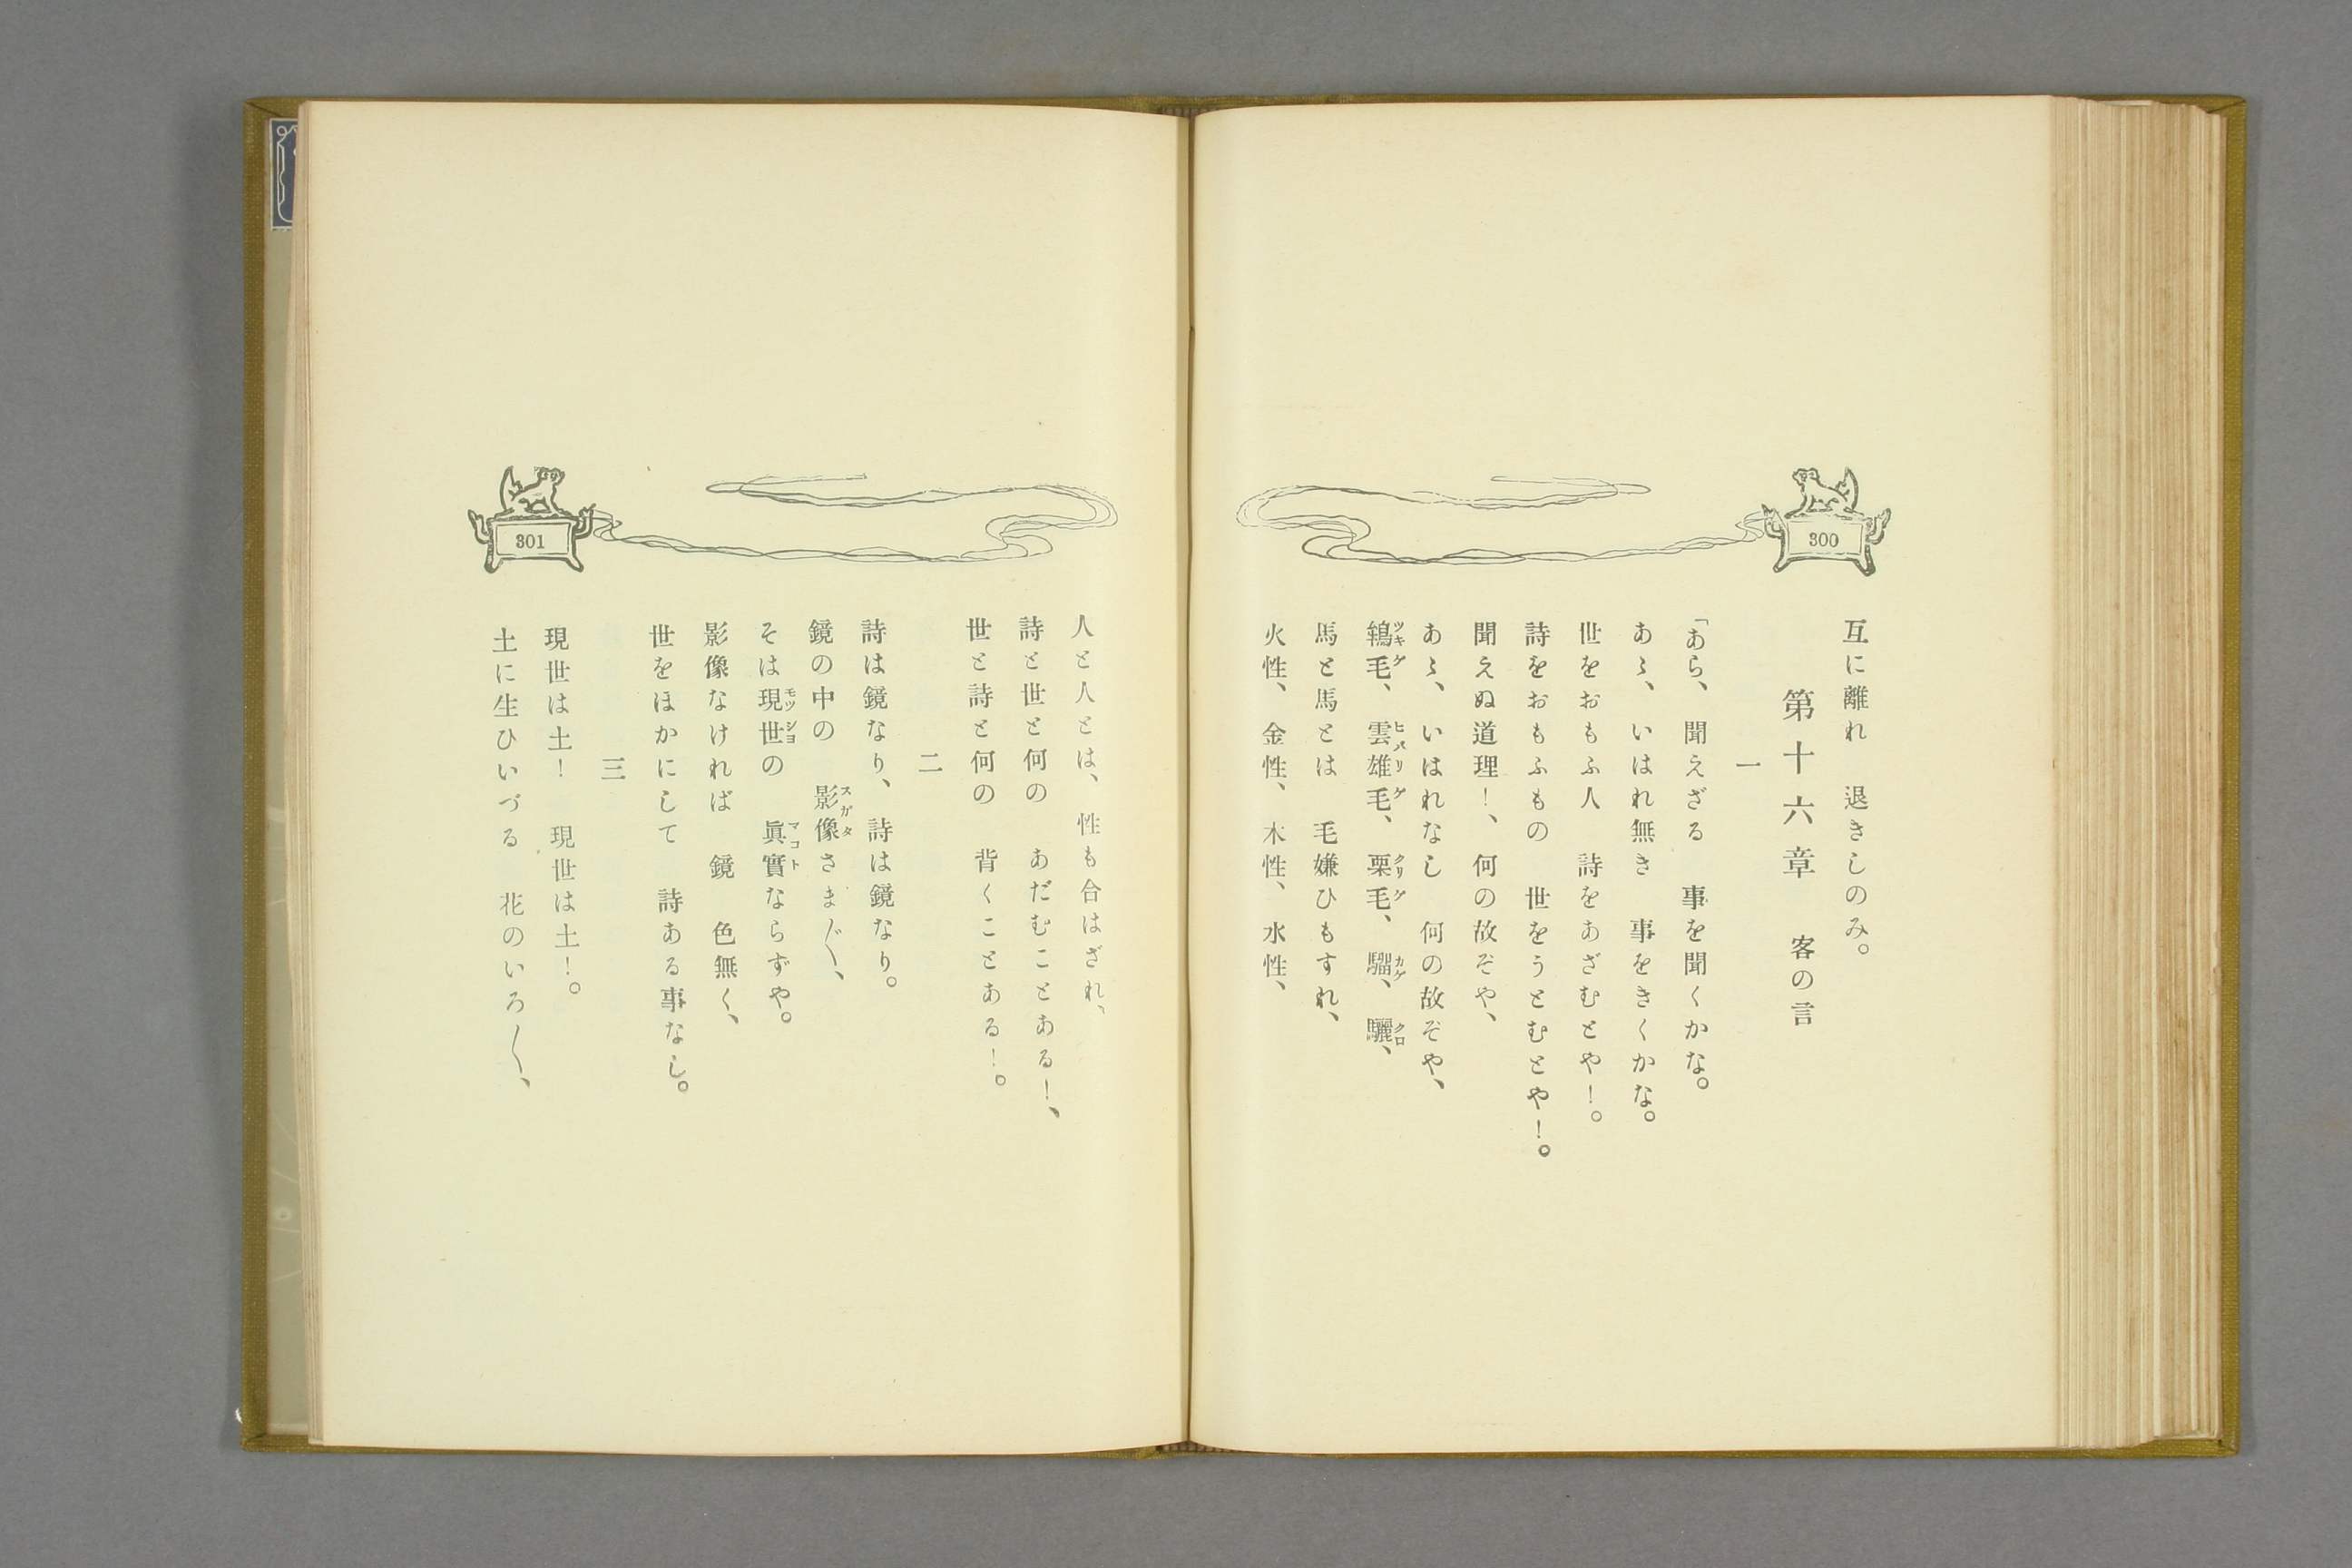 300
互に離れ　退きしのみ。
第十六章　客の言
一
「あら、聞えざる　事を聞くかな。
あゝ、いはれ無き　事をきくかな。
世をおもふ人　詩をあざむとや！。
詩をおもふもの　世をうとむとや！。
聞えぬ道理！、何の故ぞや、
あゝ、いはれなし　何の故ぞや、
鴾毛、雲雄毛、栗毛、騮、驪、
ツキゲ　ヒメリゲ　クリゲ　カゲ　クロ
馬と馬とは　毛嫌ひもすれ、
火性、金性、木性、水性、
301
人と人とは、性も合はざれ、
詩と世と何の　あだむことある！、
世と詩と何の　背くことある！。
二
詩は鏡なり、詩は鏡なり。
鏡の中の　影像さま〲、
スガタ
そは現世の　眞實ならずや。
モツシヨ　マコト
影像なければ　鏡　色無く、
世をほかにして　詩ある事なし。
三
現世は土！　現世は土！。
土に生ひいづる　花のいろ〱、